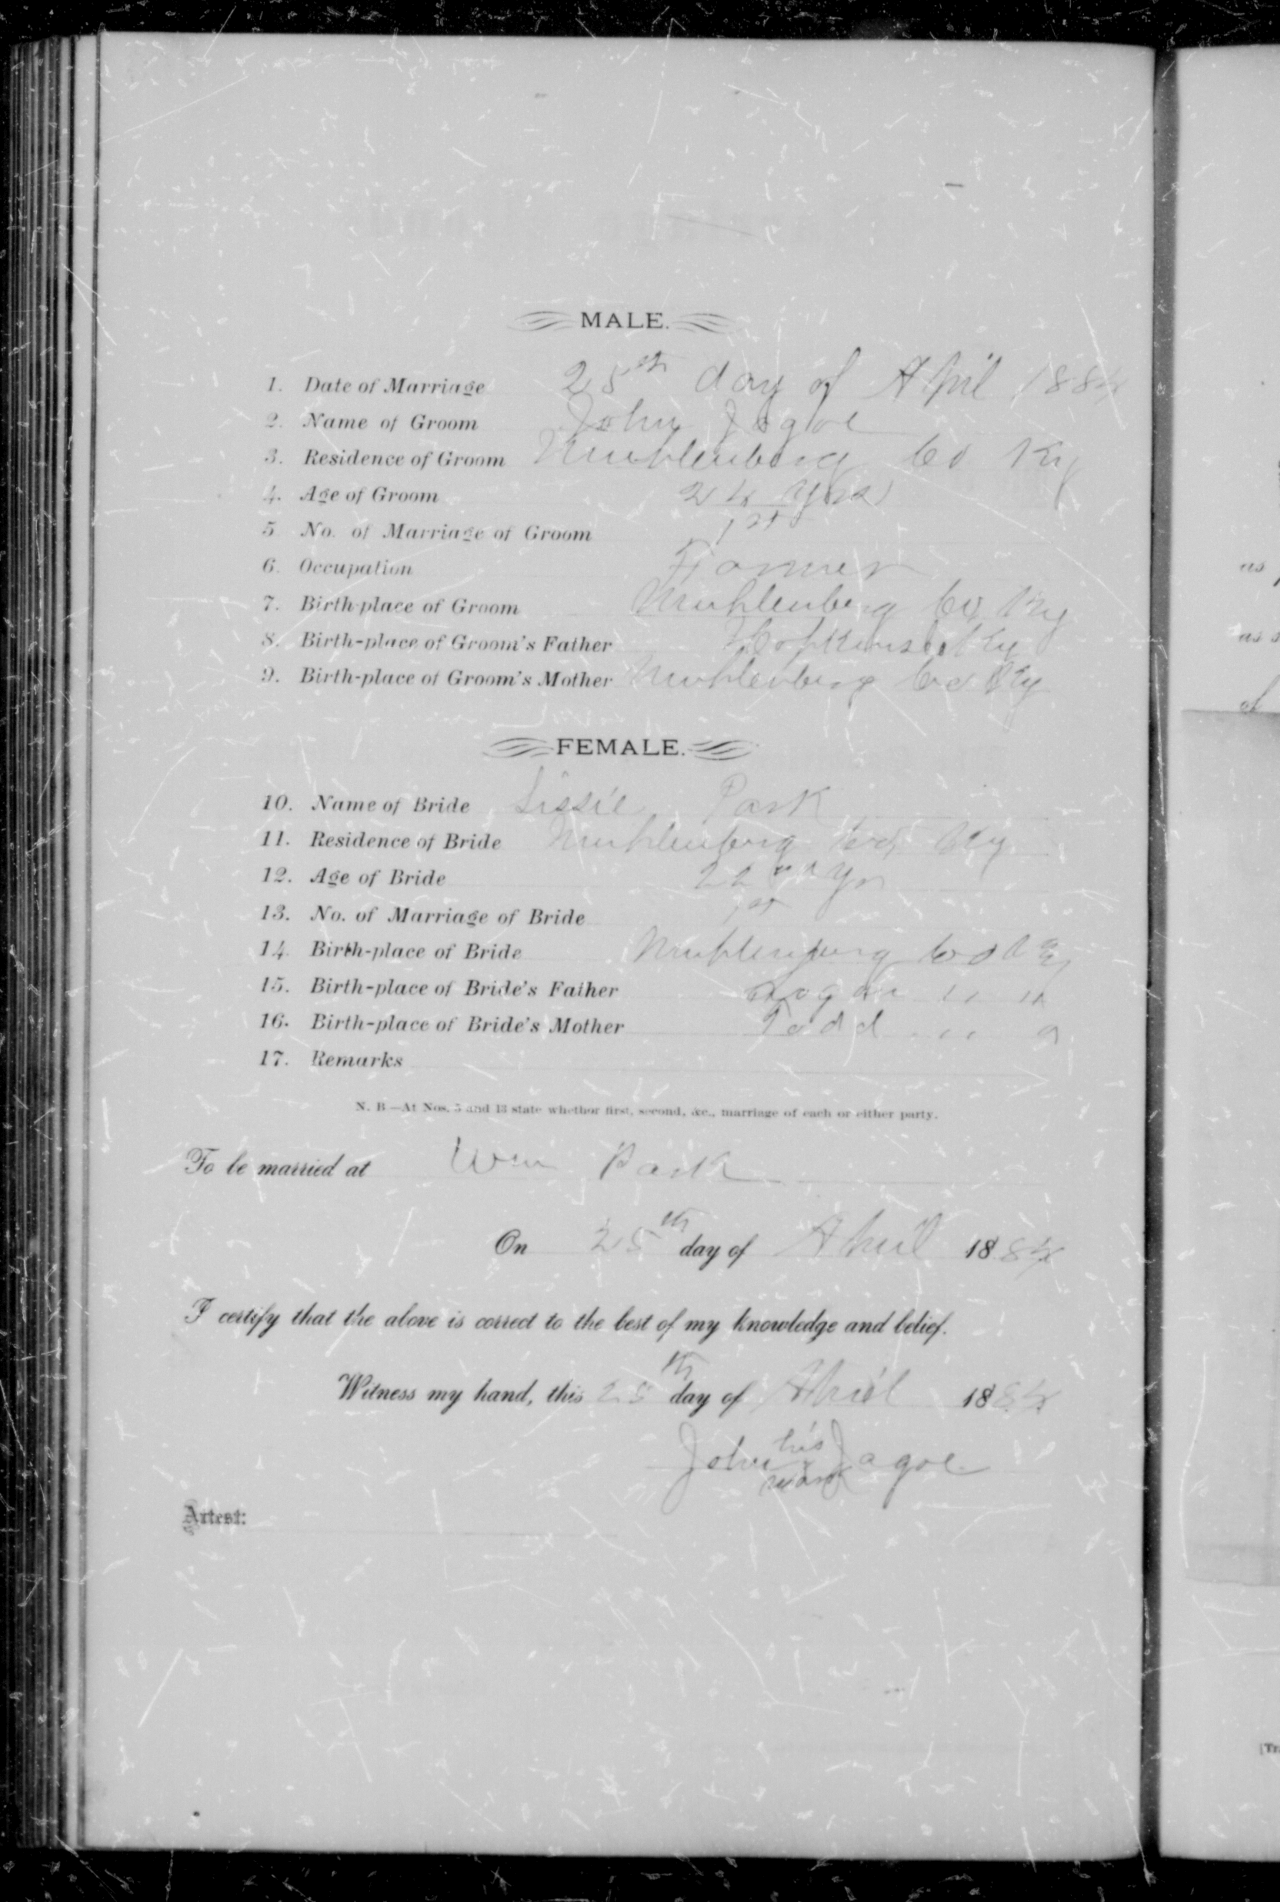 MALE.
1. Date of Marriage 25th day of April 1884
2. Name of Groom John Jagoe
3. Residence of Groom Muhlenberg Co Ky
4. Age of Groom 24 yrs
5. No. of Marriage of Groom 1st
6. Occupation Farmer
7. Birth-place of Groom Muhlenberg Co Ky
8. Birth-place of Groom's Father Hopkins Ky
9. Birth-place of Groom's Mother Muhlenberg Co Ky
FEMALE.
10. Name of Bride Lissie Park
11. Residence of Bride Muhlenberg Co Ky
12. Age of Bride 22 yr
13. No. of Marriage of Bride 1st
14. Birth-place of Bride Muhlenberg Co Ky
15. Birth-place of Bride's Father Logan " "
16. Birth-place of Bride's Mother Todd " "
17. Remarks
N. B—At Nos. 5 and 13 state whether first, second, &c., marriage of each or either party.
To be married at Wm Park
On 25th day of April 1884
I certify that the above is correct to the best of my knowledge and belief.
Witness my hand, this 25th day of April 1884
his
John x Jagoe
mark
Attest:
as
as
of
[Tr